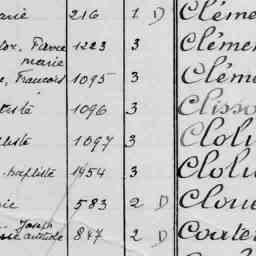 arie 216 1 D Cléme
lox, Pierre marie 1223 3 Cléme
e, Francois 1095 3 Cléme
tiste 1096 3 Clisso
tiste 1097 3 Clolu
baptiste 1454 3 Clolu
rie 583 2 D Cloue
Joseph 847 2 D Coate